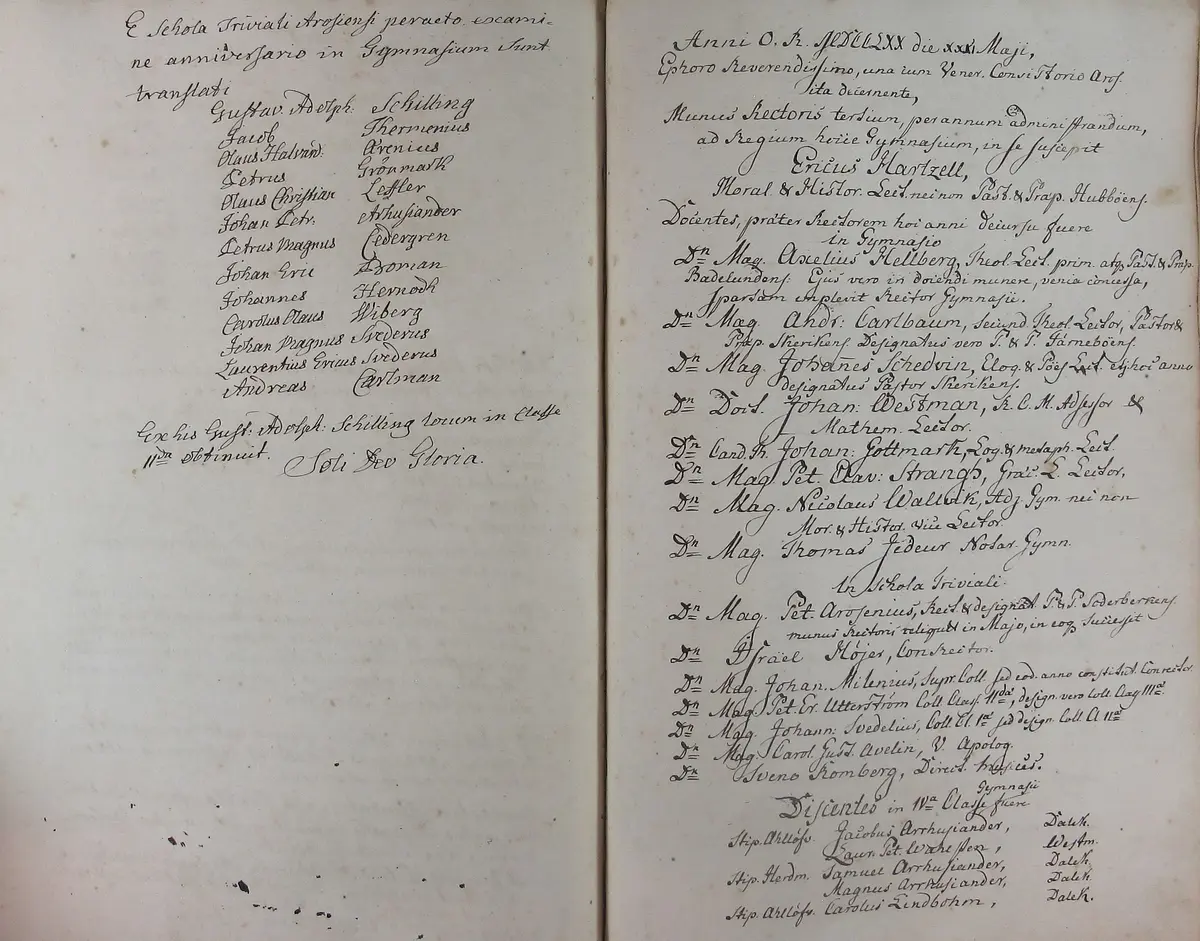 E Schola Triviali Arosiensi peracto exami-
ne anniversario in Gymnasium sunt
translati
Gustav. Adolph: Schilling
Jacob Thermenius
Olaus Halvard: Arenius
Petrus Grönmark
Olaus Christian Leffler
Johan Petr. Arhusiander
Petrus Magnus Cedergren
Johan Eric Broman
Johannes Hernodh
Carolus Olaus Wiberg
Johan Magnus Svederus
Laurentius Ericus Svederus
Andreas Carlman
Ex his Gust: Adolph: Schilling locum in Classe
IIda obtinuit. Soli Deo Gloria.
Anni O. R. MDCCLXX die Maji,
Ephoro Reverendissimo, una cum Vener. Consistorio Aros.
ita decernente,
Munus Rectoris tertium, per annum administrandum,
ad Regium hocce Gymnasium, in se suscepit
Ericus Hartzell,
Moral. & Histor. Lect. nec non Past. & Præp. Hubboëns.
Docentes, præter Rectorem hoc anni decursu fuere
in Gymnasio
Dn Mag. Axelius Hellberg, Theol. Lect. prim. atq Past. & Præp.
Badelundens. Ejus vero in docendi munere, venia concessa,
sparsam explevit Rector Gymnasii.
Dn Mag. Andr: Carlbaum, secund Theol. Lector, Pastor &
Præp. Skerikens. Designatus vero P. & P. Järneboëns.
Dn Mag. Johañes Schedvin, Eloq. & Poës. Lect. et hoc anno
designatus Pastor Skerikens.
Dn Doct. Johan: Westman, R. C. M. Adsessor &
Mathem. Lector.
Dn Cand. Th. Johan: Gottmark, Log. & metaph. Lect.
Dn Mag Pet. Olav: Strangh, Græc. L. Lector,
Dn Mag. Nicolaus Wallvik, Adj Gym. nec non
Mor. & Histor. vice Lector.
Dn Mag. Thomas Jedeur Notar. Gymn.
In Schola Triviali.
Dn Mag. Pet. Arosenius, Rect. & designat. P. & P. Söderberkens.
munus Rectoris reliquit in Majo, in eoq successit
Dn Israel Höjer, ConRector.
Dn Mag. Johan. Milenius, supr. Coll. sed eod. anno constitut. Conrector
Dn Mag. Pet. Er. Utterström Coll. Class. IIdæ, design. vero Coll. Class IIIæ.
Dn Mag. Johann: Svedelius, Coll. Cl. Iæ sed design. Coll. Cl IIæ
Dn Mag. Carol. Gust. Avelin, V. Apolog.
Dn Sveno Romberg, Direct. Musices.
Gymnasii
Discentes in IVa Classe fuere
Stip. Ahllöfv. Jacobus Arrhusiander, Dalek.
Laur. Pet. Wahesten, Westm.
Stip. Herdm. Samuel Arrhusiander, Dalek.
Magnus Arrhusiander, Dalek.
Stip. Ahllöfv. Carolus Lindbohm, Dalek.